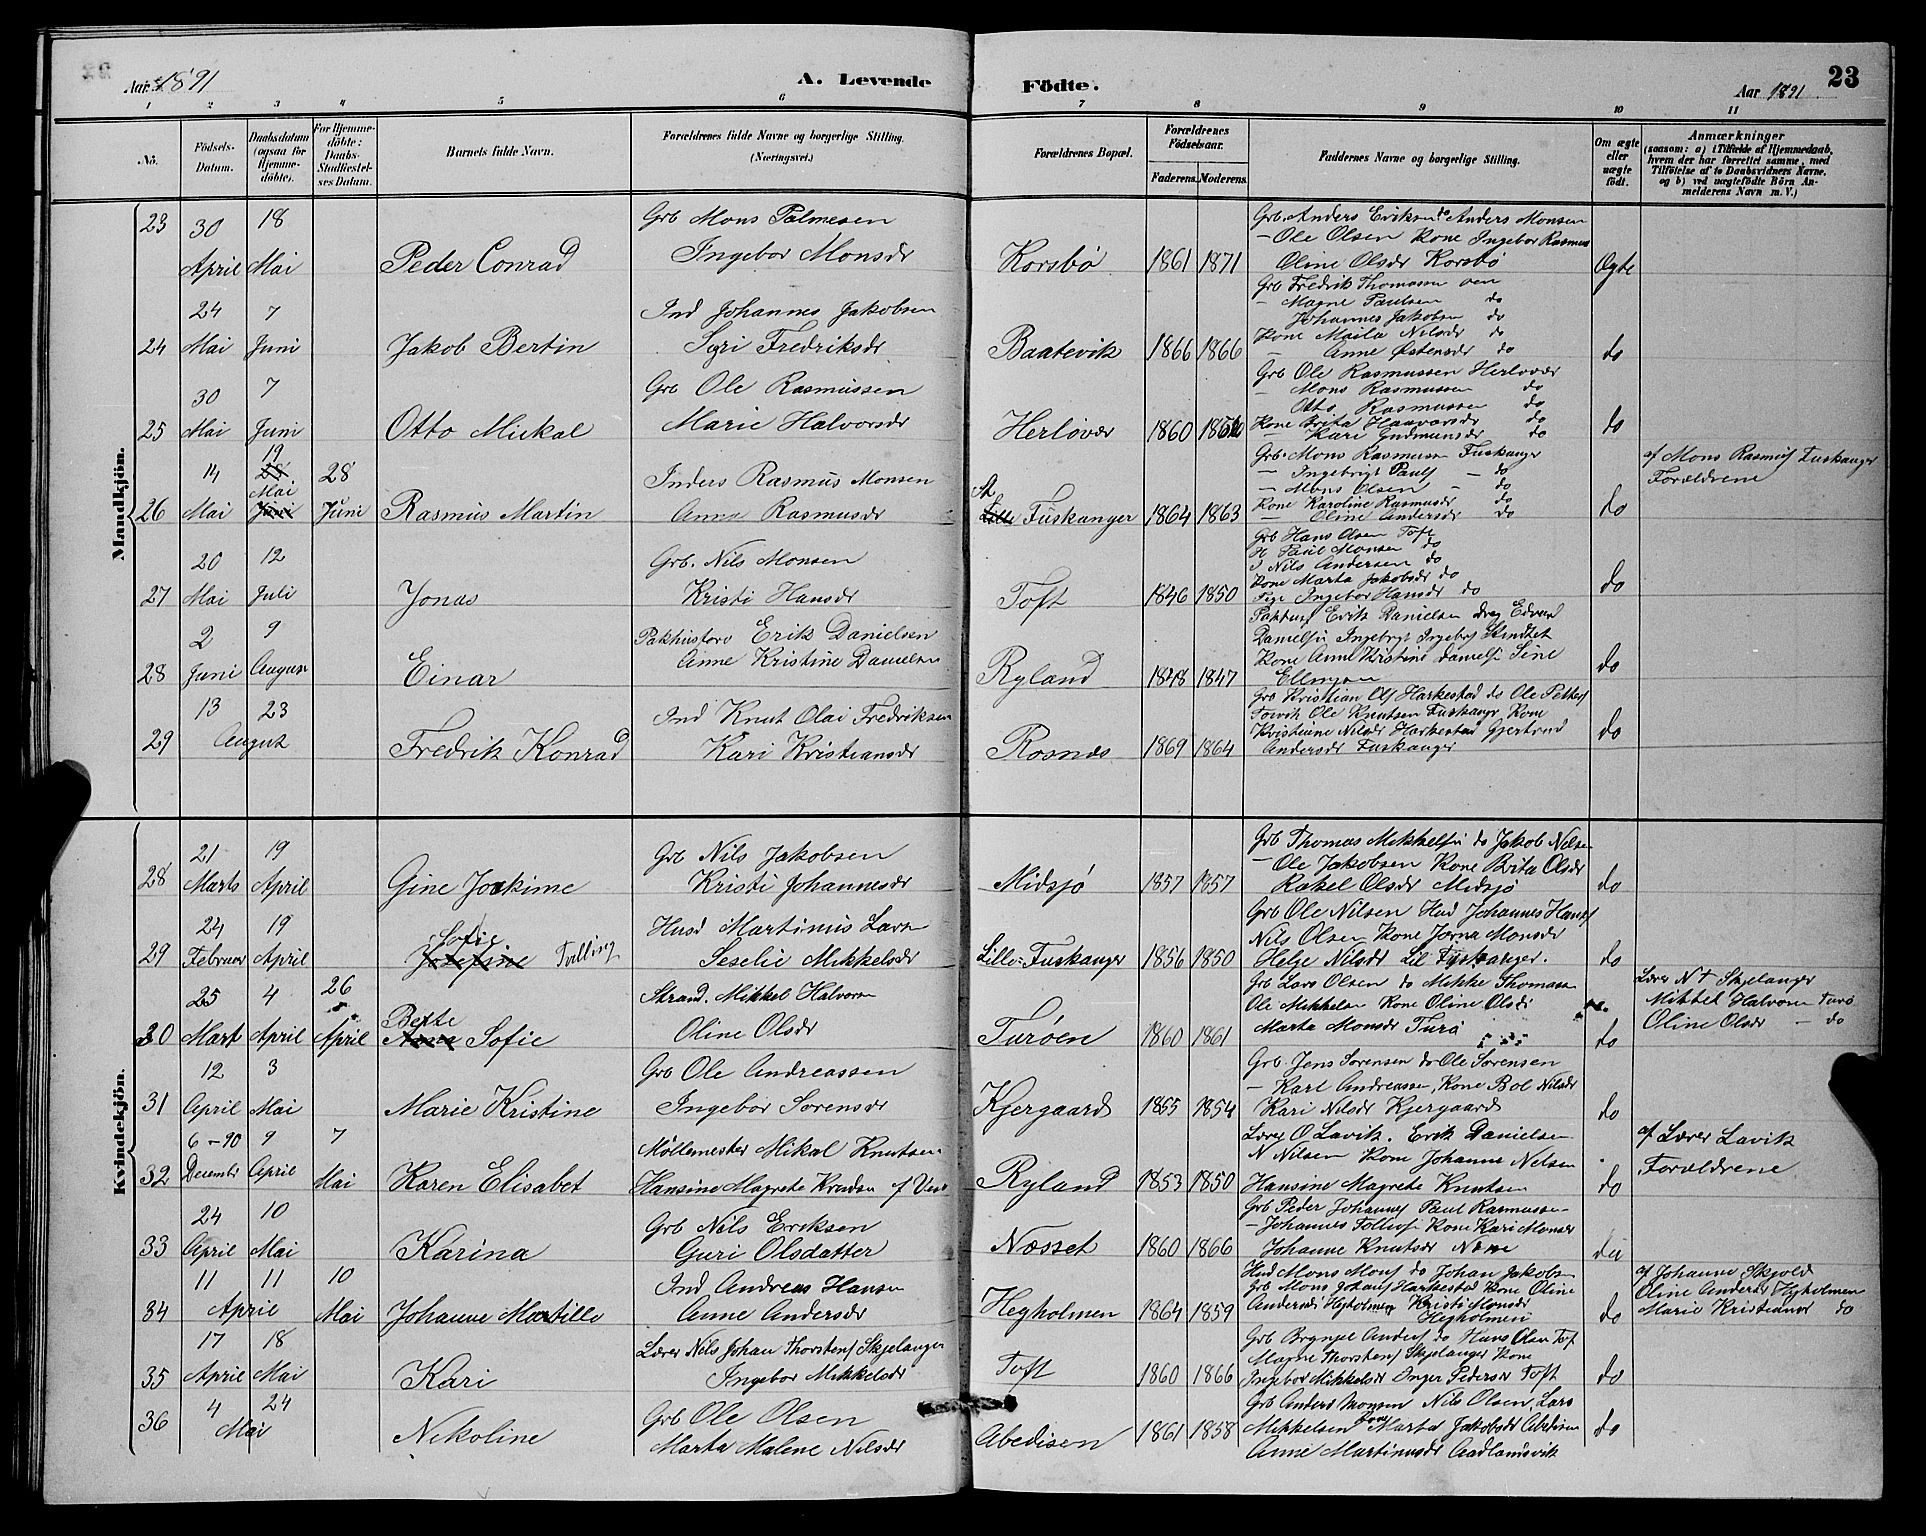 Aar 1891
A. Levende Födte.
Aar 1891
23
1 2 3 4 5 6 7 8 9 10 11
No.
Födsels-Datum.
Daabsdatum (ogsaa for Hjemme-döbte).
For Hjemme-döbte: Daabs-Stadfæstel-ses Datum.
Barnets fulde Navn.
Forældrenes fulde Navne og borgerlige Stilling. (Næringsvei.)
Forældrenes Bopæl.
Forældrenes Födselsaar.
Faderens. Moderens.
Faddernes Navne og borgerlige Stilling.
Om ægte eller uægte født.
Anmærkninger
(saasom: a) i Tilfælde af Hjemmedaab, hvem der har forrettet samme, med Tilföielse af to Daabsvidners Navne, og b) ved uægtefödte Börn An-melderens Navn m. V.)
Mandkjön.
23 30 April 18 Mai Peder Conrad
Grb Mons Palmesen
Ingebor Monsdr
Korsbø 1861 1871
Grb. Anders Eriksen do Anders Monsen
- Ole Olsen Kone Ingebor Rasmus
Oline Olsdr Korsbø
Ægte
24 24 Mai 7 Juni Jakob Bertin
Ind Johannes Jakobsen
Syri Fredriksdr
Baatevik 1866 1866
Grb Fredrik Thomassen
- Magne Paulsen do
Johannes Jakobsen do
Kone Maila Nilsdr do
- Anne Østensdr do
do
25 30 Mai 7 Juni Otto Mickal
Grb Ole Rasmussen
Marie Halvorsdr
Herløvær 1860
Grb Ole Rasmussen Herløvær
- Mons Rasmussen do
Otto Rasmussen do
Kone Brita Haavorsdr do
- Kari Gudmunsdr do
do
26 14 Mai 19 Mai 28 Juni Rasmus Martin
Inders Rasmus Monsen
Anna Rasmusdr
St Fuskanger 1864 1863
Grb. Mons Rasmussen Fuskanger
- Ingebrigt Pauls - do
- Mons Olsen - do
Kone Karoline Rasmusdr do
- Oline Andersdr do
do
af Mons Rasmus Fuskanger
Forældrene
27 20 Mai 12 Juli Jonas
Grb. Nils Monsen
Kristi Hansdr
Toft 1846 1850
Grb Hans Olsen Toft
Paul Monsen do
Nils Andersen do
Kone Marta Jakobsdr do
Pige Ingebor Hansdr do
do
28 2 Juni 9 August Einar
Pakhusforv Erik Danielsen
Anne Kristine Danielsen
Ryland 1848 1847
Erik Danielsen drg Edvard
Kone Anne Kristine Sine
Ellingsen
do
29 13 23 August Fredrik Konrad
Ind Knut Olai Fredriksen
Kari Kristiansdr
Rosnes 1869 1864
Grb Kristian Ols Harkestad do Ole Petters
Torvik Ole Knutsen Fuskangr Kone
Kristiane Nilsdr Harkestad Gjertrud
Andersdr Fuskanger
do
Kvindekjön.
28 21 Marts 19 April Gine Joakime
Grb Nils Jakobsen
Kristi Johannesdr
Midsjø 1857 1857
Grb Thomas Mikkelsen do Jakob Nilsen
- Ole Jakobsen Kone Brita Olsdr
Rakel Olsdr Midsjø
do
29 24 Februar 19 April Sofie Josefine Tvilling
Husd Martinus Larsn
Seselie Mikkelsdr
Lille-Fuskanger 1856 1850
Grb Ole Nilsen Hud Johannes Hans
Nils Olsen Kone Jorna Monsdr
Helje Nilsdr Lil Fuskanger.
do
30 25 Mart 4 April 26 April Berte Anna Sofie
Strand. Mikkel Halvorsn
Oline Olsdr
Turøen 1860 1861
Grb Lars Olsen do Mikkel Thomassn
Ole Mikkelsn Kone Oline Olsdr
Marta Monsdr Turø
do
Lærer N T Skjelanger
Mikkel Halvorsn Turø
Oline Olsdr - do
31 12 April 3 Mai Marie Kristine
Grb Ole Andreassen
Ingebor Sorensdr
Kjergaard 1855 1854
Grb. Jens Sorensen do Ole Sorensen
- Karl Andreassen, Kone Bol Nilsdr
Kari Nilsdr Kjergaard
do
32 6-90 Decembr 9 April 7 Mai Karen Elisabet
Møllemester Mikal Knutsen
Hansine Magrete Knudsn
Ryland 1853 1850
Lærer O Lavik. Erik Danielsen
N Nilsen Kone Johanne Nelsen
Hansine Magrete Knutsen
do
af Lærer Lavik
Forældrene
33 24 April 10 Mai Karina
Grb Nils Eriksen
Guri Olsdatter
Næsset 1860 1866
Grb Peder Johannes Paul Rasmussen
- Johannes Kone Kari Monsdr
Johanne Knutsdr
do
34 11 11 April 10 Mai Johanne Martille
Ind Andreas Hansen
Anne Andersdr
Hegholmen 1864 1859
Hud Mons Mons do Johan Jakobsn
Grb Mons Johans Harkestad Kone Oline
Andersdr Hegholmen Kristi Monsdr
Hegholmen
do
af Johanne Skjold
Oline Andersdr Hegholmen
Marie Kristiansdr do
35 17 April 18 Mai Kari
Lærer Nils Johan Thorstens Skjelanger
Ingebor Mikkelsdr
Toft 1860 1866
Grb Brynjel Anders do Hans Olsn Toft
Magne Thorstens Skjelanger Kone
Ingebor Mikkelsdr Inger Pedersdr Toft
do
36 4 24 Mai Nikoline
Grb Ole Olsen
Marta Malene Nilsdr
Abedisen 1861 1858
Grb Anders Monsen Nils Olsen, Lars
Mikkelsen Kone Marta Jakobsdr Abedisen
Anne Martinusdr Aadlandsvik
do